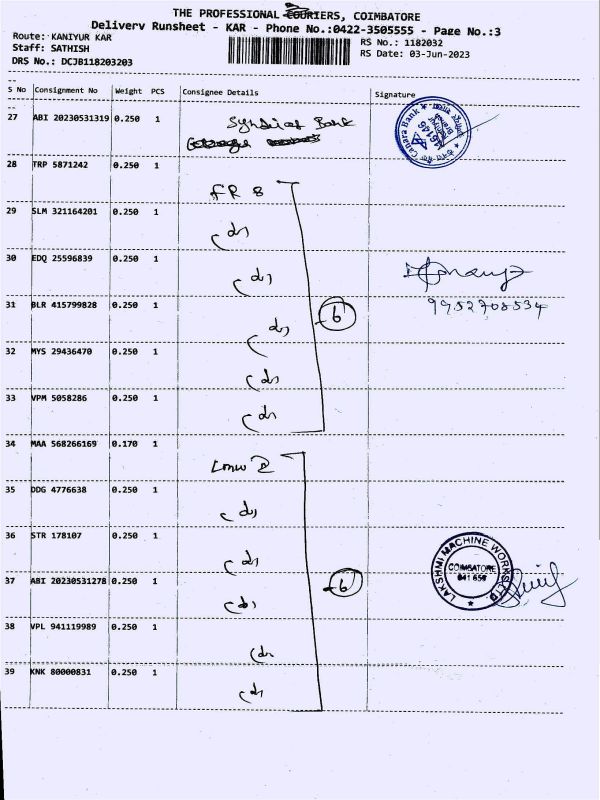 THE PROFESSIONAL COURIERS, COIMBATORE
Delivery Runsheet - KAR - Phone No.:0422-3505555 - Page No.:3
Route: KANIYUR KAR
RS No.: 1182032
Staff: SATHISH
RS Date: 03-Jun-2023
DRS No.: DCJB118203203
S No Consignment No Weight PCS Consignee Details Signature
27 ABI 20230531319 0.250 1 Syndicat Bank
Canara Bank
46146
28 TRP 5871242 0.250 1
FR 8
29 SLM 321164201 0.250 1
30 EDQ 25596839 0.250 1
31 BLR 415799828 0.250 1
6
9952708534
32 MYS 29436470 0.250 1
33 VPM 5058286 0.250 1
34 MAA 568266169 0.170 1
Lmw 2
35 DDG 4776638 0.250 1
36 STR 178107 0.250 1
LAKSHMI MACHINE WORKS LTD
COIMBATORE
641 659
37 ABI 20230531278 0.250 1
6
38 VPL 941119989 0.250 1
39 KNK 80000831 0.250 1